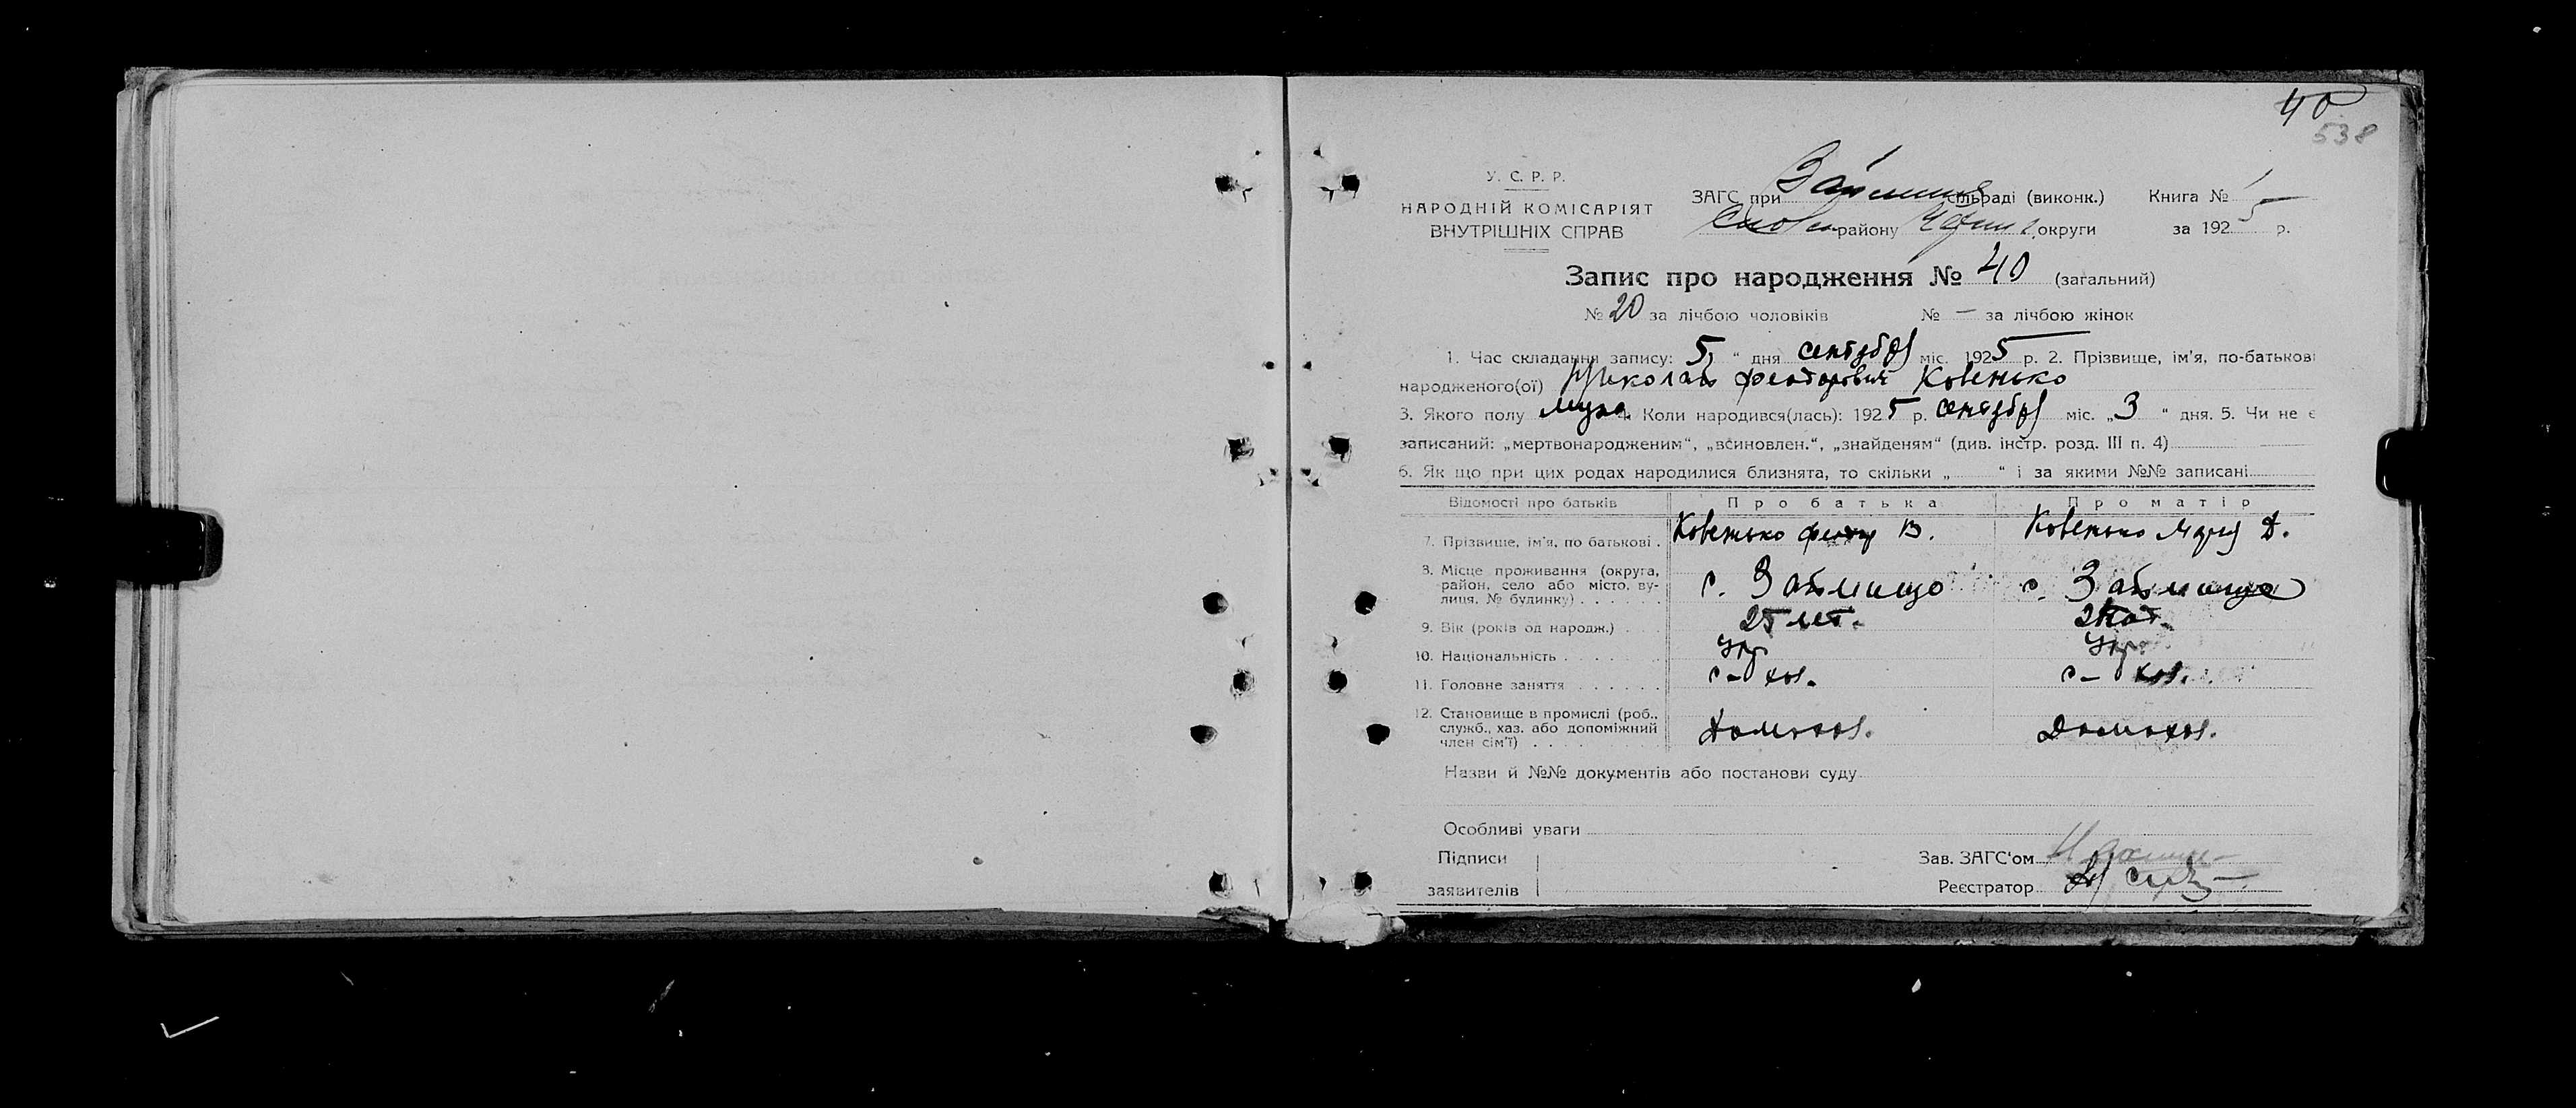 40
538
У. С. Р. Р.
НАРОДНІЙ КОМІСАРІЯТ
ВНУТРІШНІХ СПРАВ
ЗАГС при Займищ сільраді (виконк.) Книга № 1
району округи за 1925 р.
Запис про народження № 40 (загальний)
№ 20 за лічбою чоловіків № — за лічбою жінок
1. Час складання запису: 5 " дня сентября міс. 1925 р. 2. Прізвище, ім'я, по-батькові
народженого(ої) Николай Феодорович Ковенько
3. Якого полу муж. 4. Коли народився(лась): 1925 р. сентября міс. „3 " дня. 5. Чи не є
записаний: „мертвонародженим", „всиновлен.", „знайденям" (див. інстр. розд. III п. 4)
6. Як що при цих родах народилися близнята, то скільки „ " і за якими №№ записані
Відомості про батьків Про батька Про матір
7. Прізвище, ім'я, по батькові . Ковенько Феодор В. Ковенько Мария Д.
8. Місце проживання (округа,
район, село або місто, ву-
лиця, № будинку) . . . . . . с. Займищо с. Займище
9. Вік (років од народж.) . . . 25 лет.
10. Національність . . . . . . Укр. Укр.
11. Головне заняття . . . . . . с-хоз. с-хоз.
12. Становище в промислі (роб.,
служб., хаз. або допоміжний
член сім'ї) . . . . . . . . Домохоз. Домохоз.
Назви й №№ документів або постанови суду
Особливі уваги
Підписи
заявителів
Зав. ЗАГС'ом
Реєстратор